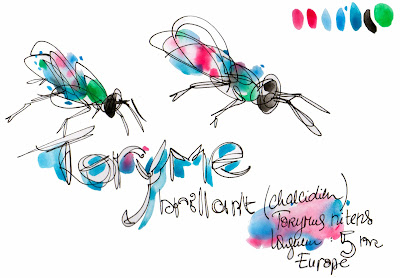 Toryme
brillant (chalcidien)
Torymus nitens
5 mm
Europe